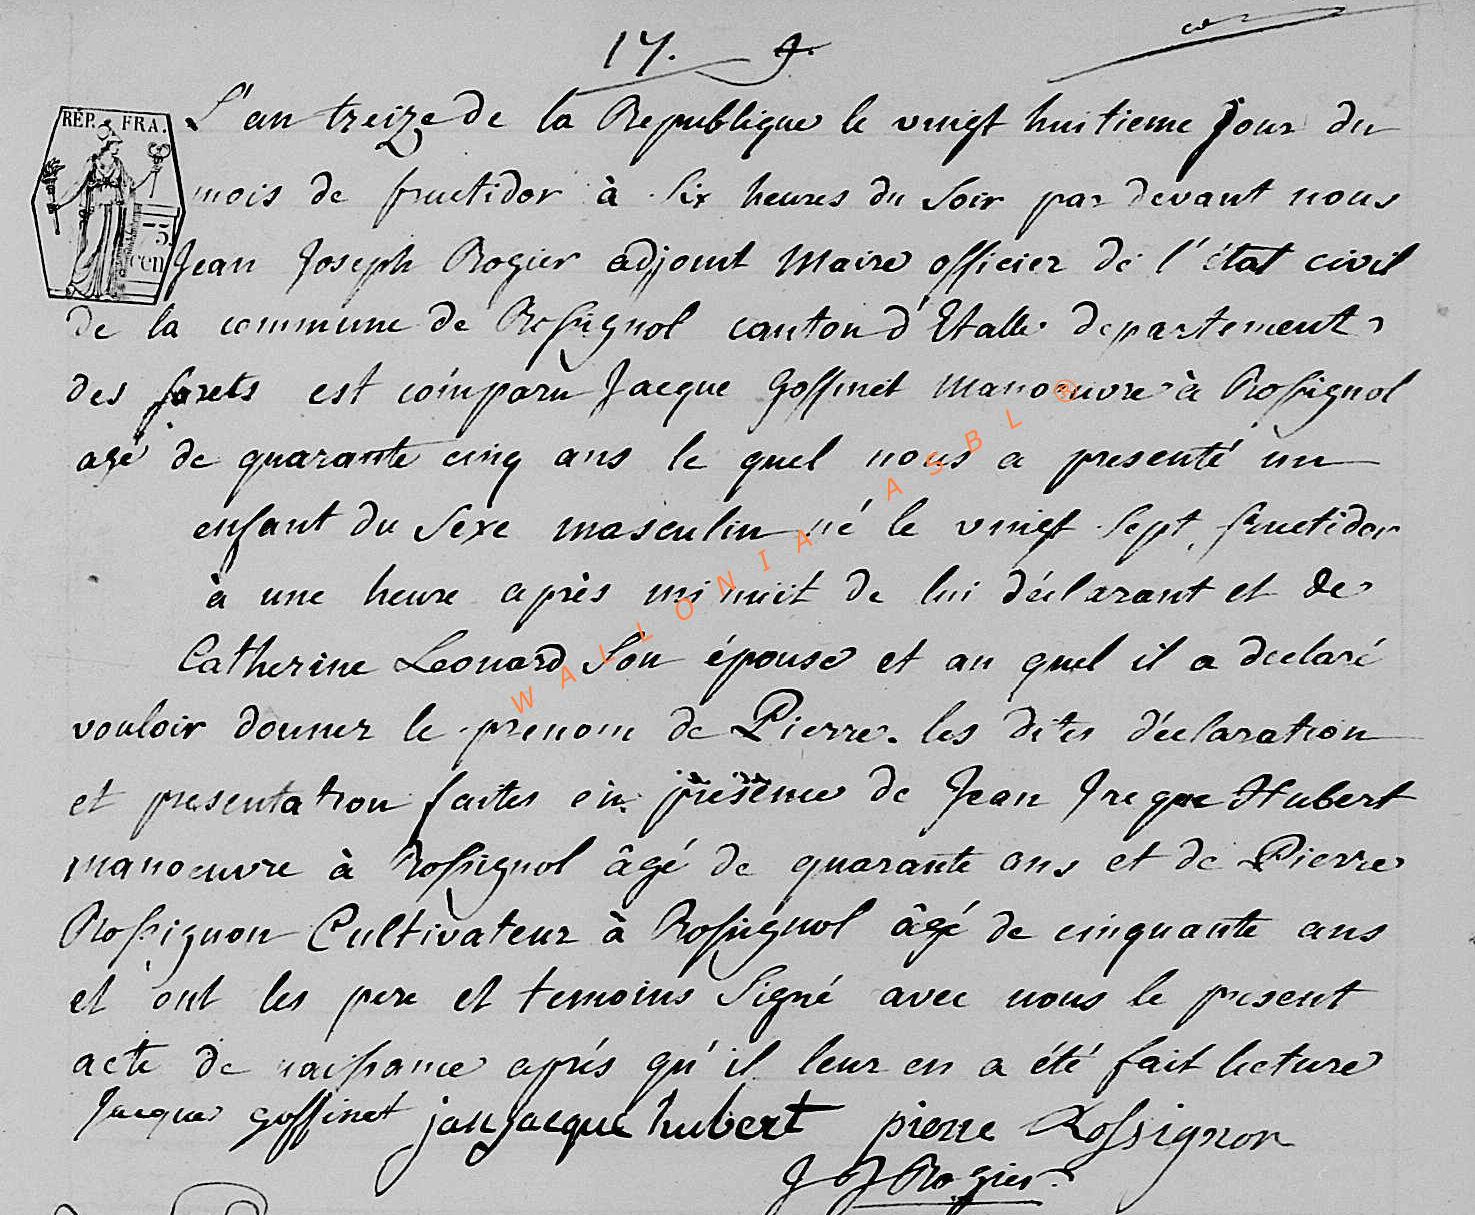 17.
RÉP. FRA.
L'an treize de la Republique le vingt huitieme jour du
mois de fructidor à six heures du soir par devant nous
75
cen
Jean Joseph Rogier adjoint Maire officier de l'état civil
de la commune de Rossignol canton d'Etalle departement
des forets est comparu Jacque Goffinet Manoeuvre à Rossignol
agé de quarante cinq ans le quel nous a presenté un
enfant du sexe masculin né le vingt sept fructidor
à une heure après minuit de lui déclarant et de
Catherine Leonard son épouse et au quel il a declaré
vouloir donner le prenom de Pierre. les dites déclaration
et presentation faites en présence de Jean Jacque Hubert
manoeuvre à Rossignol âgé de quarante ans et de Pierre
Rossignon Cultivateur à Rossignol âgé de cinquante ans
et ont les pere et temoins signé avec nous le present
acte de naissance après qu'il leur en a été fait lecture
Jacque goffinet janjacque hubert pierre Rossignon
J J Rogier
WALLONIA ASBL ®